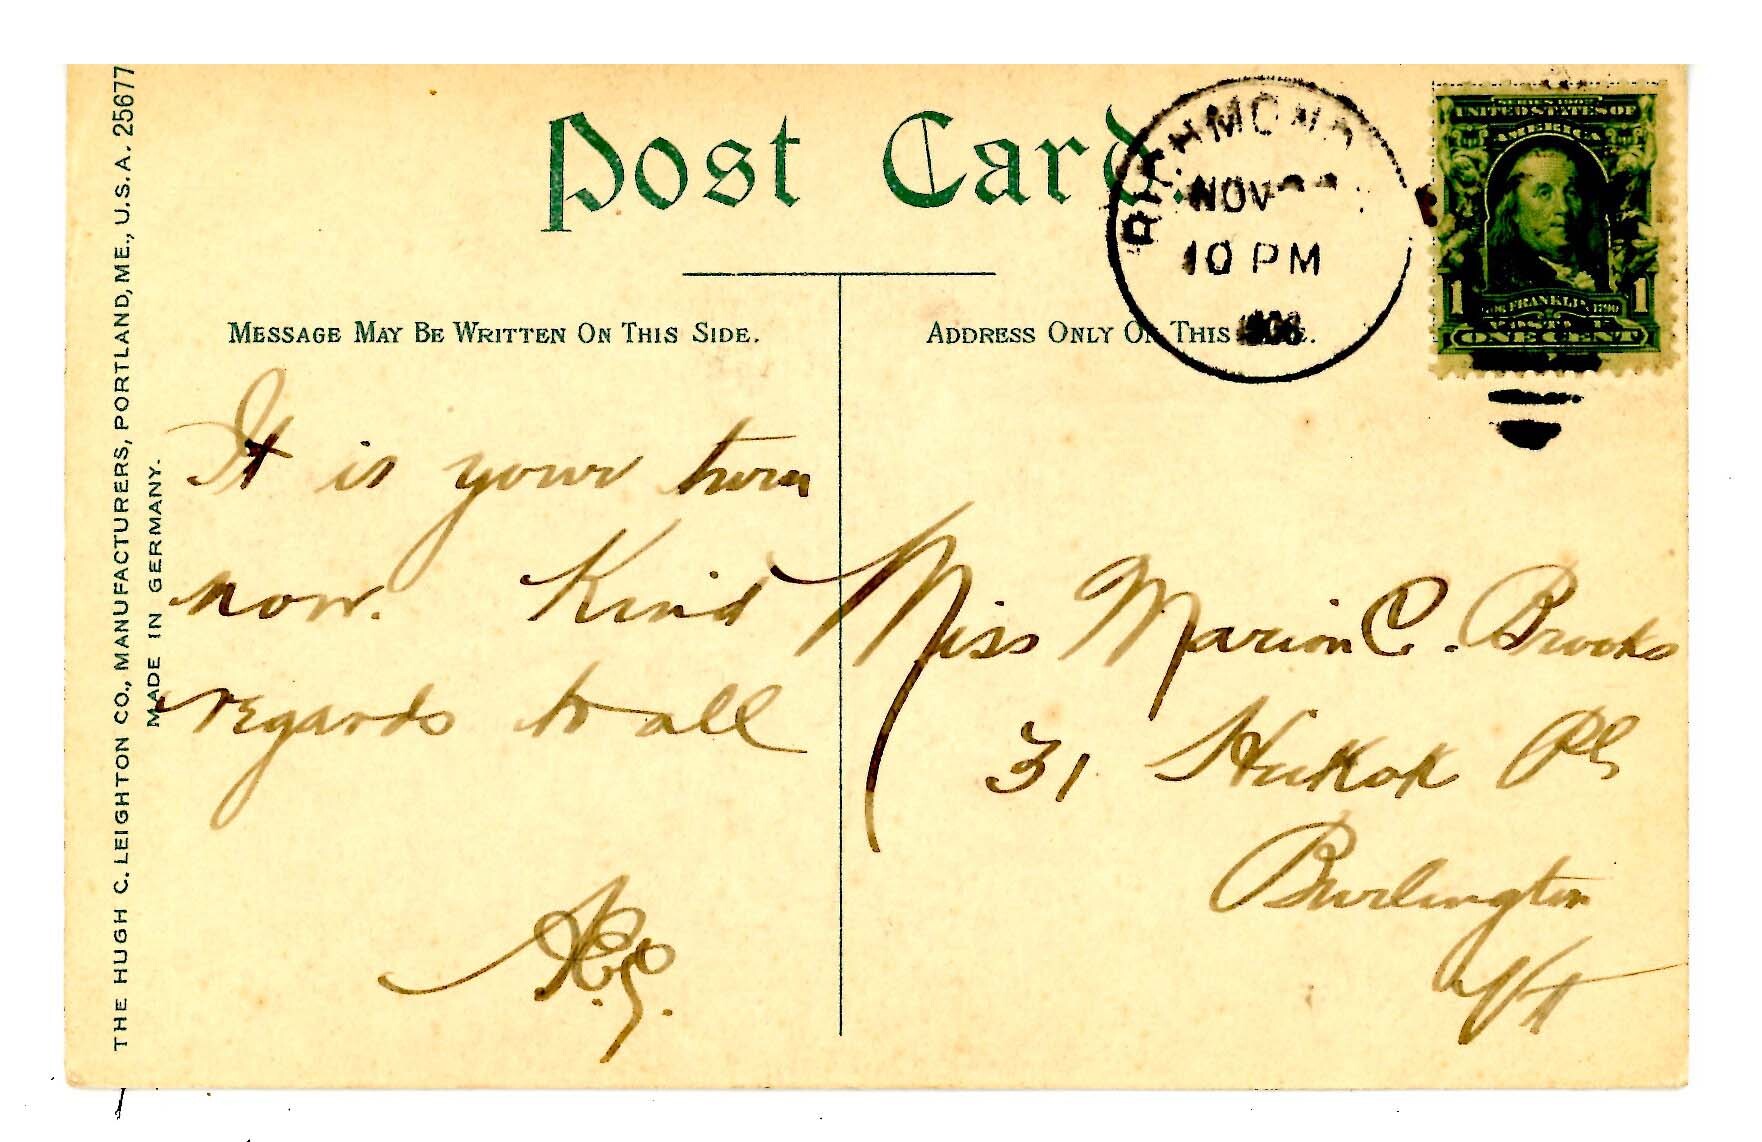 THE HUGH C. LEIGHTON CO., MANUFACTURERS, PORTLAND, ME., U.S.A. 25677
MADE IN GERMANY.
Post Card.
RICHMOND
NOV
10 PM
1908
SERIES 1902
UNITED STATES OF
AMERICA
FRANKLIN 1790
1 1
ONE CENT
MESSAGE MAY BE WRITTEN ON THIS SIDE.
ADDRESS ONLY ON THIS
It is your turn
now. Kind
regards to all
Miss Marion C. Brooks
31 Hickok Pl
Burlington
Vt